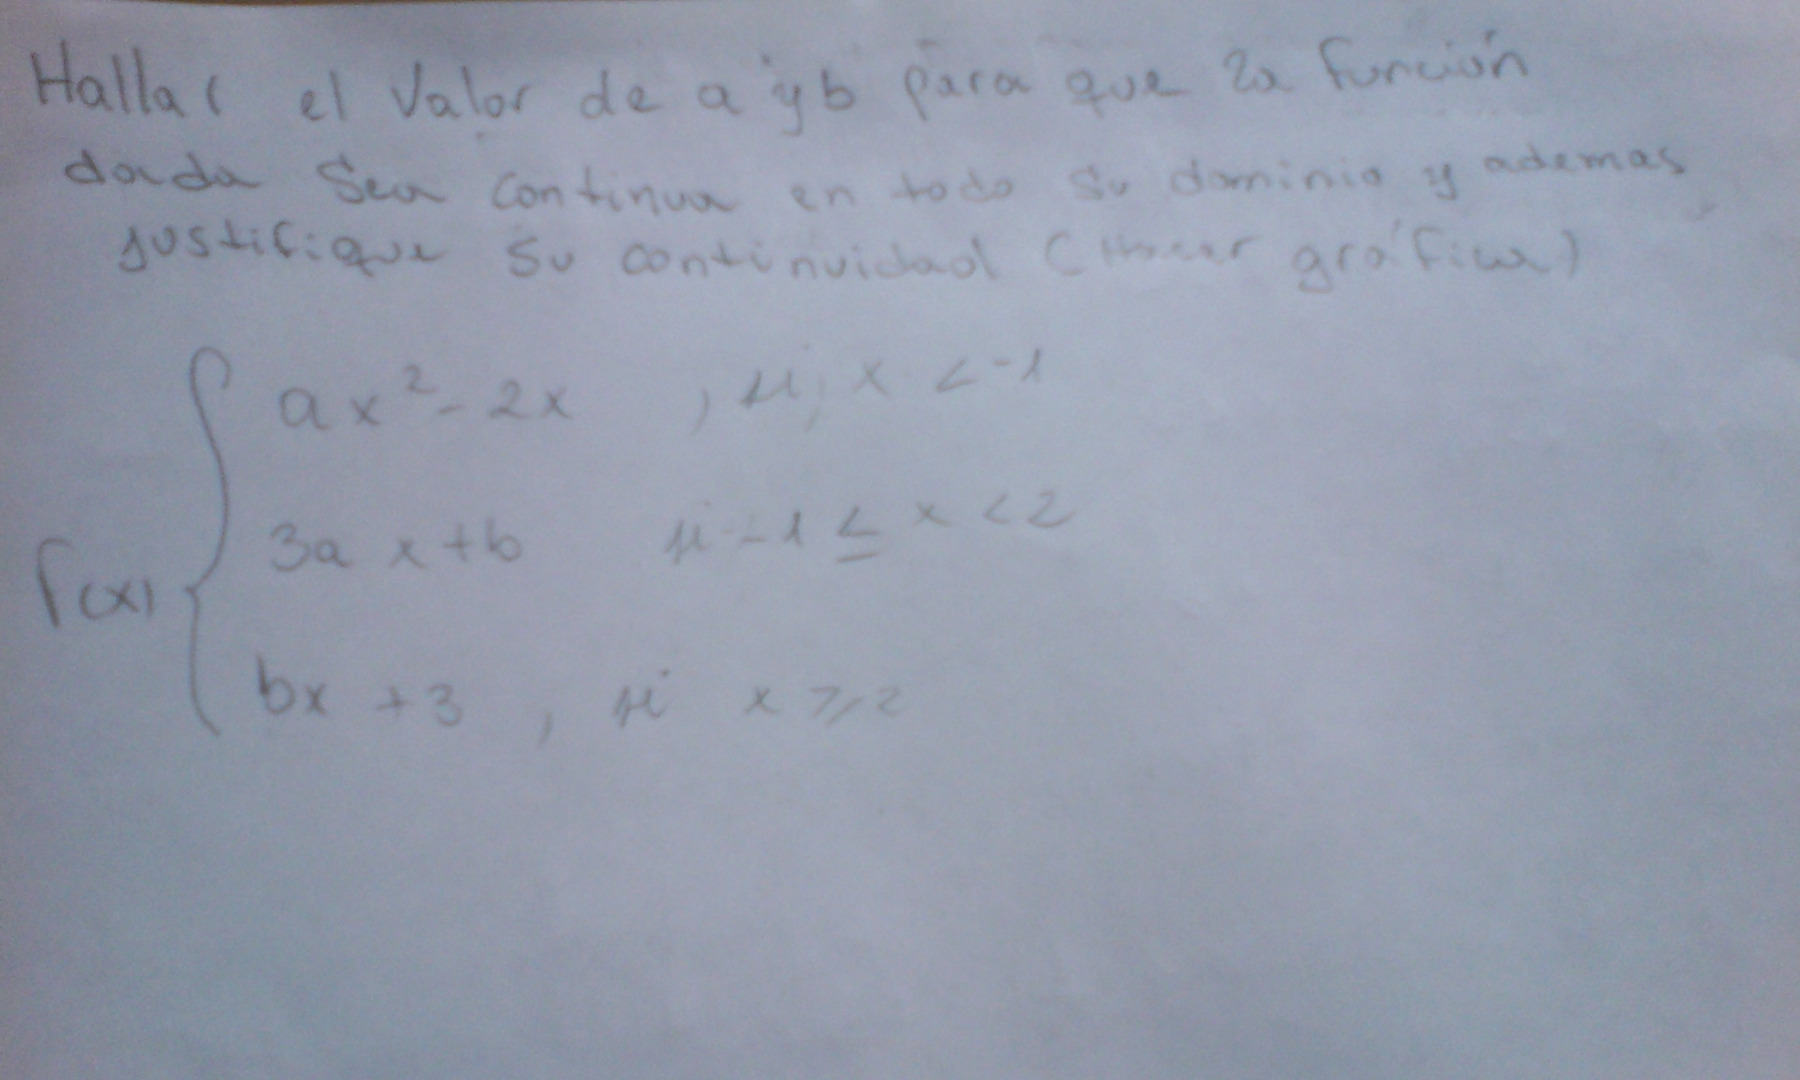 Hallar el valor de a y b para que la función
dada sea continua en todo su dominio y ademas
justifique su continuidad (Hacer gráfica)
ax² - 2x , si, x < -1
3a x + b si -1 ≤ x < 2
f(x)
bx + 3 , si x ≥ 2